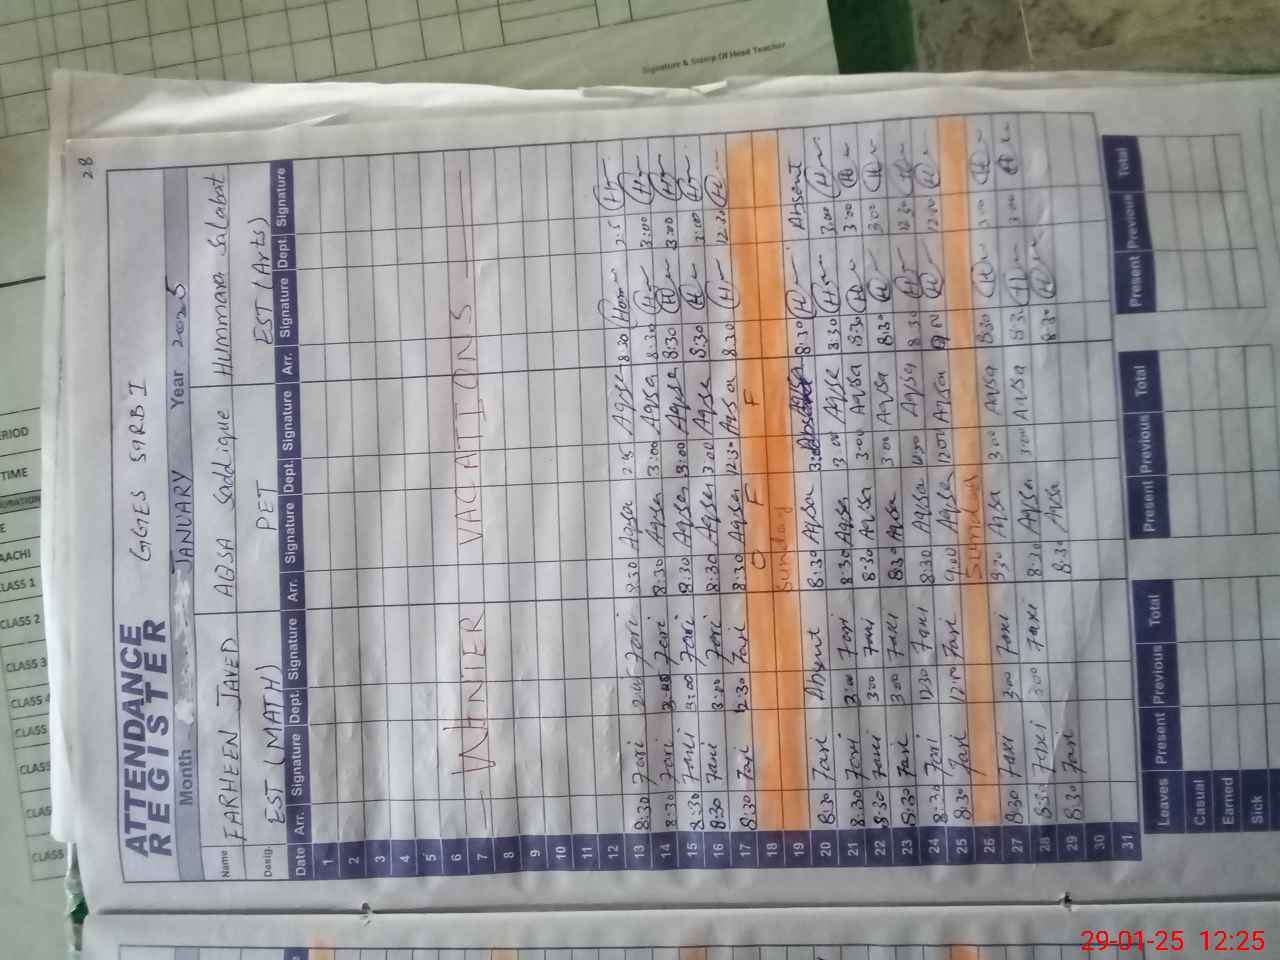 Signature & Stamp Of Head Teacher
28
ATTENDANCE REGISTER
GGES 59RB I
Month JANUARY Year 2025
Name FARHEEN JAVED AQSA Saddique HUMMARA SALABAT
Desig. EST (MATH) PET EST (Arts)
Date Arr. Signature Dept. Signature Arr. Signature Dept. Signature Arr. Signature Dept. Signature
1
2
3
4
5
6
7
— WINTER VACATIONS —
8
9
10
11
12
13 8:30 8:30 Aqsa 2:5 Aqsa 8:30 2:5
14 8:30 8:30 Aqsa 3:00 Aqsa 8:30 3:00
15 8:30 3:00 8:30 Aqsa 3:00 Aqsa 8:30 3:00
16 8:30 3:00 8:30 Aqsa 3:00 Aqsa 8:30 3:00
17 8:30 12:30 8:30 Aqsa 12:30 Aqsa 8:30 12:30
18 O F F
19 Sunday
20 8:30 Absent 8:30 Aqsa Aqsa 8:30 Absent
21 8:30 3:00 8:30 Aqsa 3:00 Aqsa 8:30 3:00
22 8:30 3:00 8:30 Aqsa 3:00 Aqsa 8:30 3:00
23 8:30 3:00 8:30 Aqsa 3:00 Aqsa 8:30 3:00
24 8:30 12:30 8:30 Aqsa 12:30 Aqsa 8:30 12:30
25 8:30 12:00 9:00 Aqsa 12:00 Aqsa 9:00 12:00
26 Sunday
27 8:30 3:00 8:30 Aqsa 3:00 Aqsa 8:30 3:00
28 8:30 3:00 8:30 Aqsa 3:00 Aqsa 8:30 3:00
29 8:30 8:30 Aqsa 8:30
30
31
Leaves Present Previous Total Present Previous Total Present Previous Total
Casual
Earned
Sick
CLASS 1
CLASS 2
CLASS 3
29-01-25 12:25